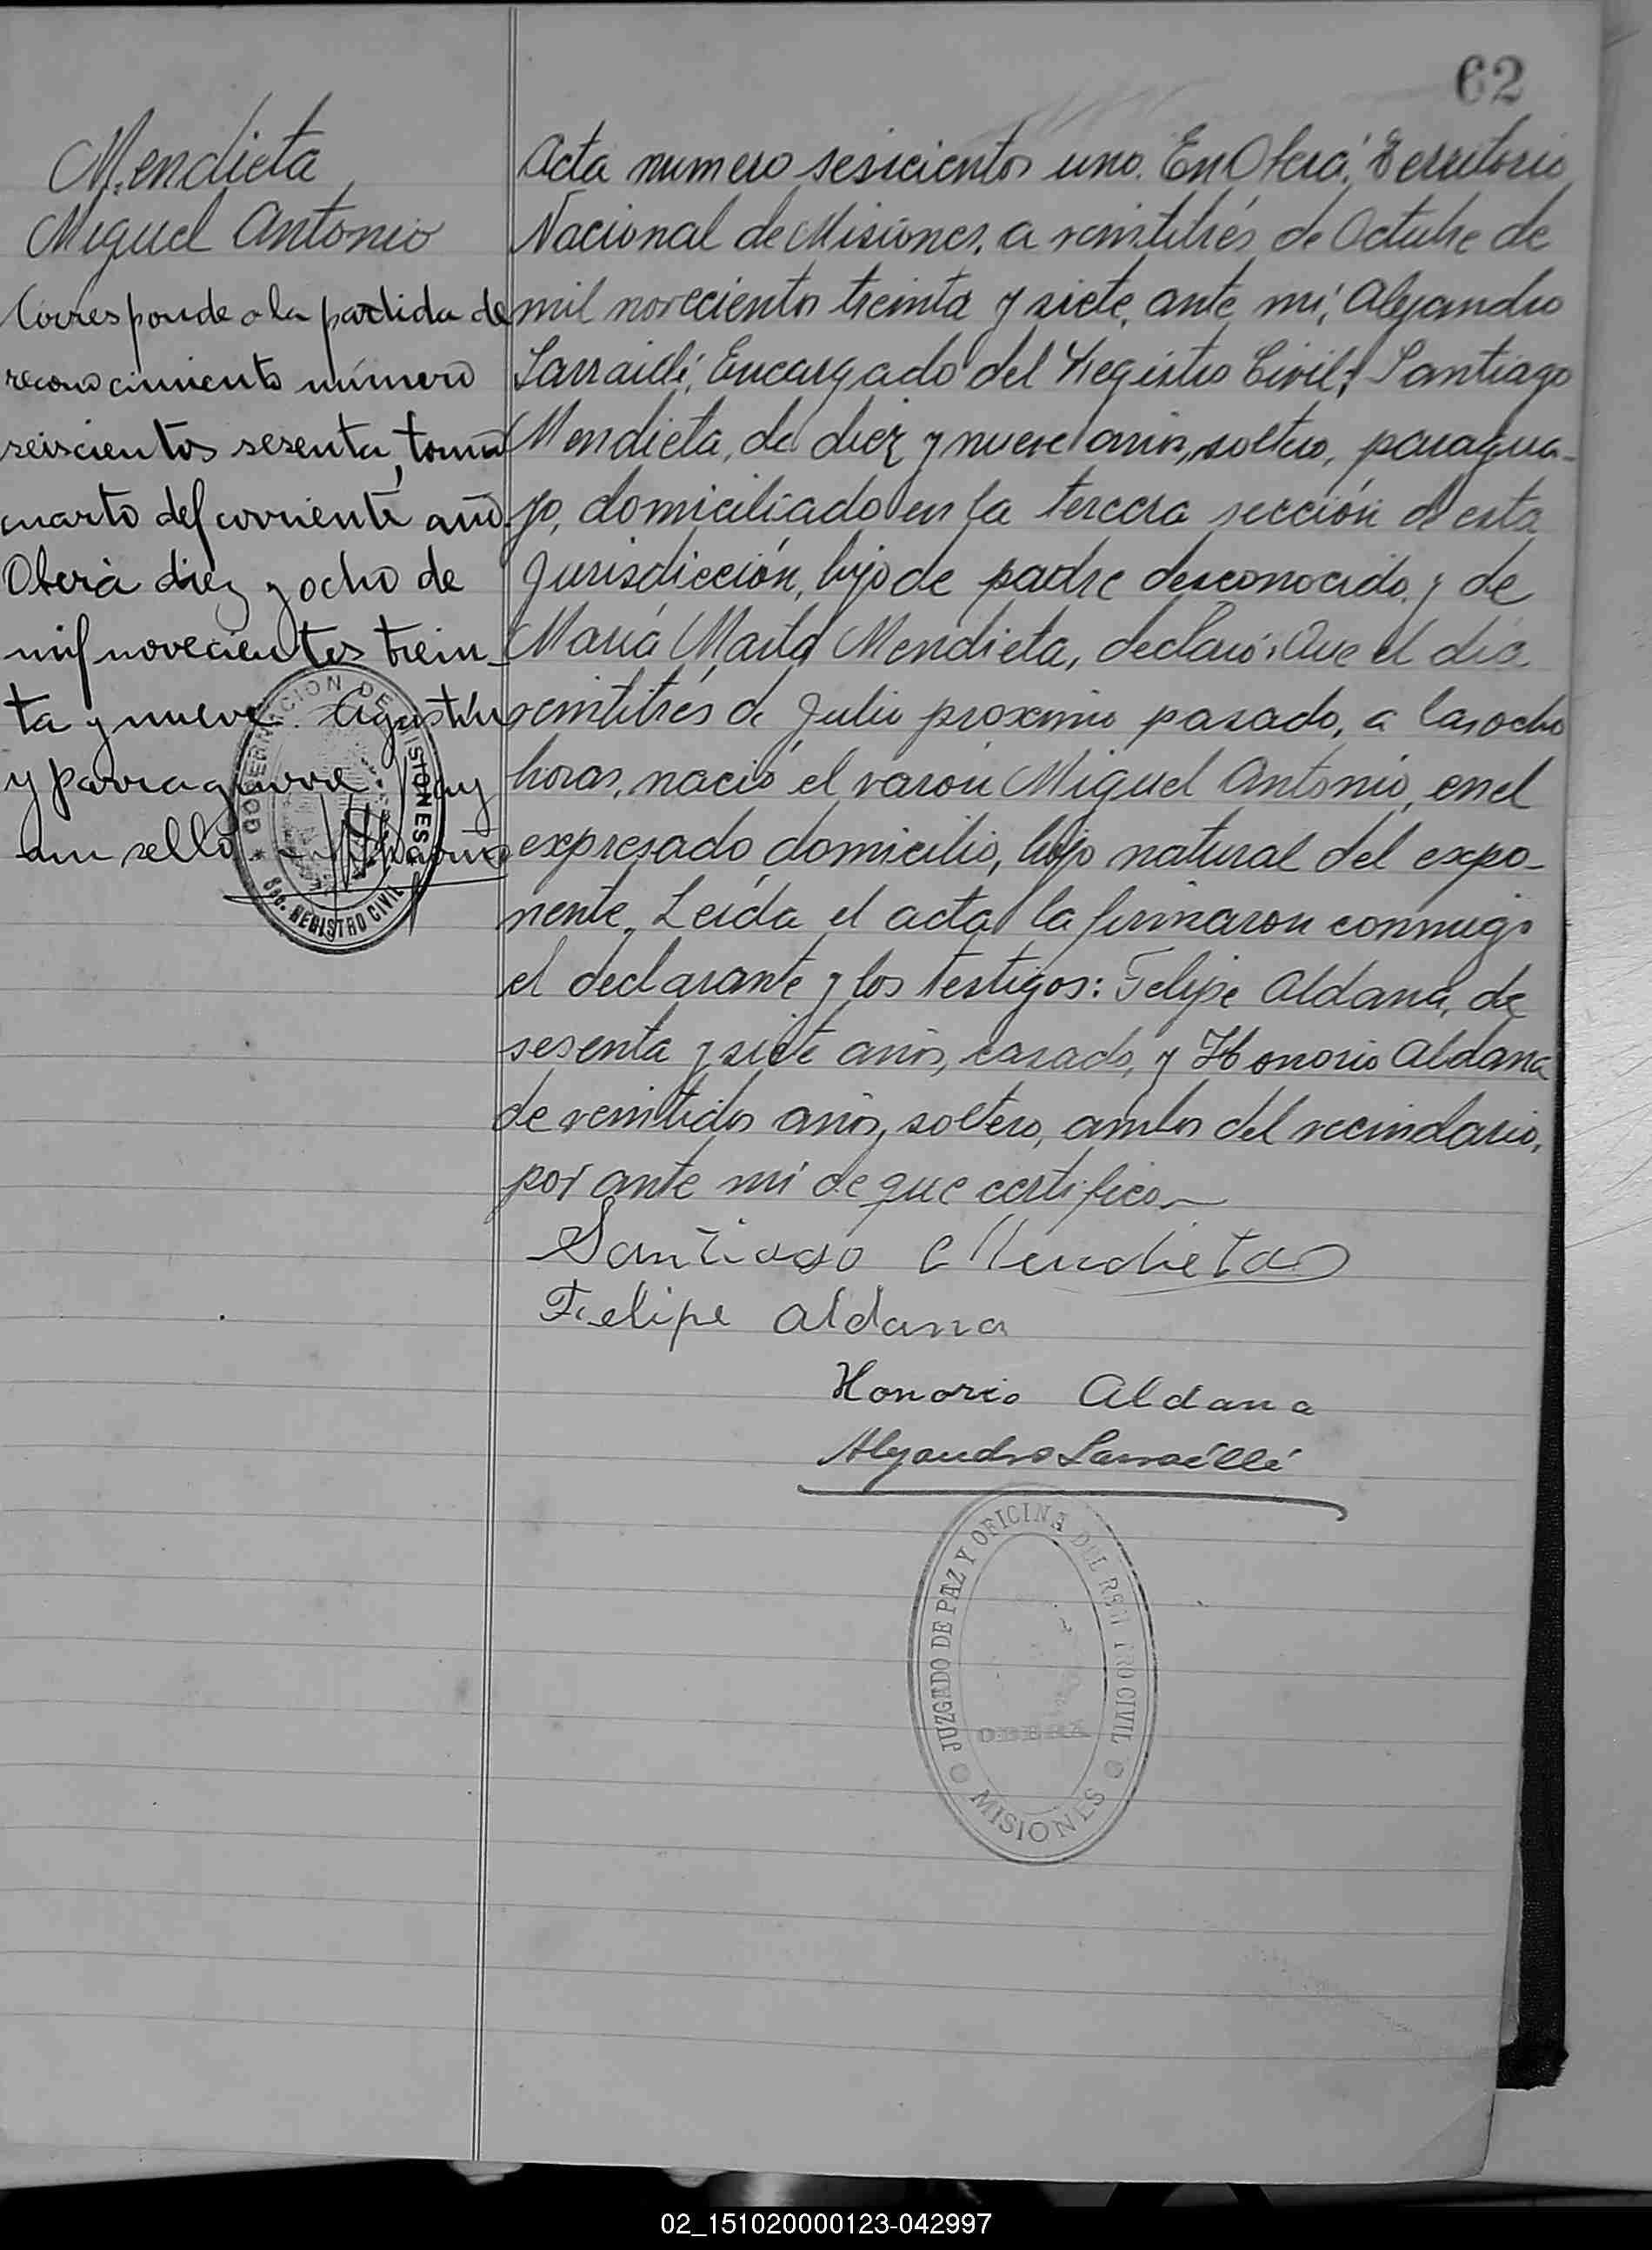 62
Mendieta
Miguel Antonio
Corresponde a la partida de
reconocimiento número
seiscientos sesenta, tomo
cuarto del corriente año.
Oberá diez y ocho de
mil novecientos trein-
ta y nueve. Agustín
Yparraguirre. Hay
un sello.
GOBERNACION DE MISIONES
REGISTRO CIVIL
Acta numero sesicientos uno. En Oberá, Territorio
Nacional de Misiones, a veintitrés de Octubre de
mil novecientos treinta y siete, ante mí, Alejandro
Encargado del Registro Civil, Santiago
Mendieta, de diez y nueve años, soltero, paragua-
yo, domiciliado en la tercera sección de esta
Jurisdicción, hijo de padre desconocido y de
María Mendieta, declaró: Que el día
veintitrés de Julio proximo pasado, a las ocho
horas, nació el varon Miguel Antonio, en el
expresado domicilio, hijo natural del expo-
nente. Leída el acta la firmaron conmigo
el declarante y los testigos: Felipe Aldana, de
sesenta y siete años, casado, y Honorio Aldana
de veintidos años, soltero, ambos del vecindario,
por ante mi de que certifico
Santiago Mendieta
Felipe Aldana
Honorio Aldana
Alejandro
JUZGADO DE PAZ Y OFICINA DEL REGISTRO CIVIL
OBERA
MISIONES
02_151020000123-042997